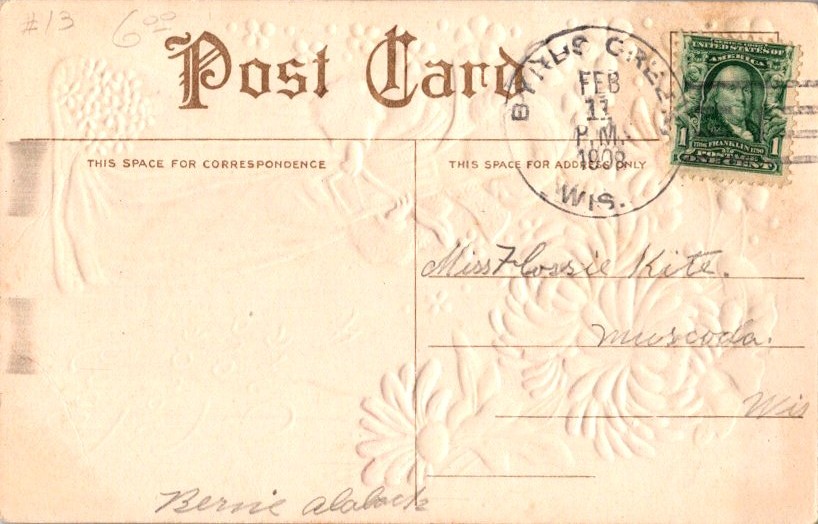 #13 6.00
Post Card
BYRDS CREEK
FEB
11
P.M.
1908
WIS.
SERIES 1902
UNITED STATES OF
AMERICA
1 1706 FRANKLIN 1790 1
POSTAGE
ONE CENT
THIS SPACE FOR CORRESPONDENCE
THIS SPACE FOR ADDRESS ONLY
Miss Flossie Kite.
Muscoda.
Wis
Bernie